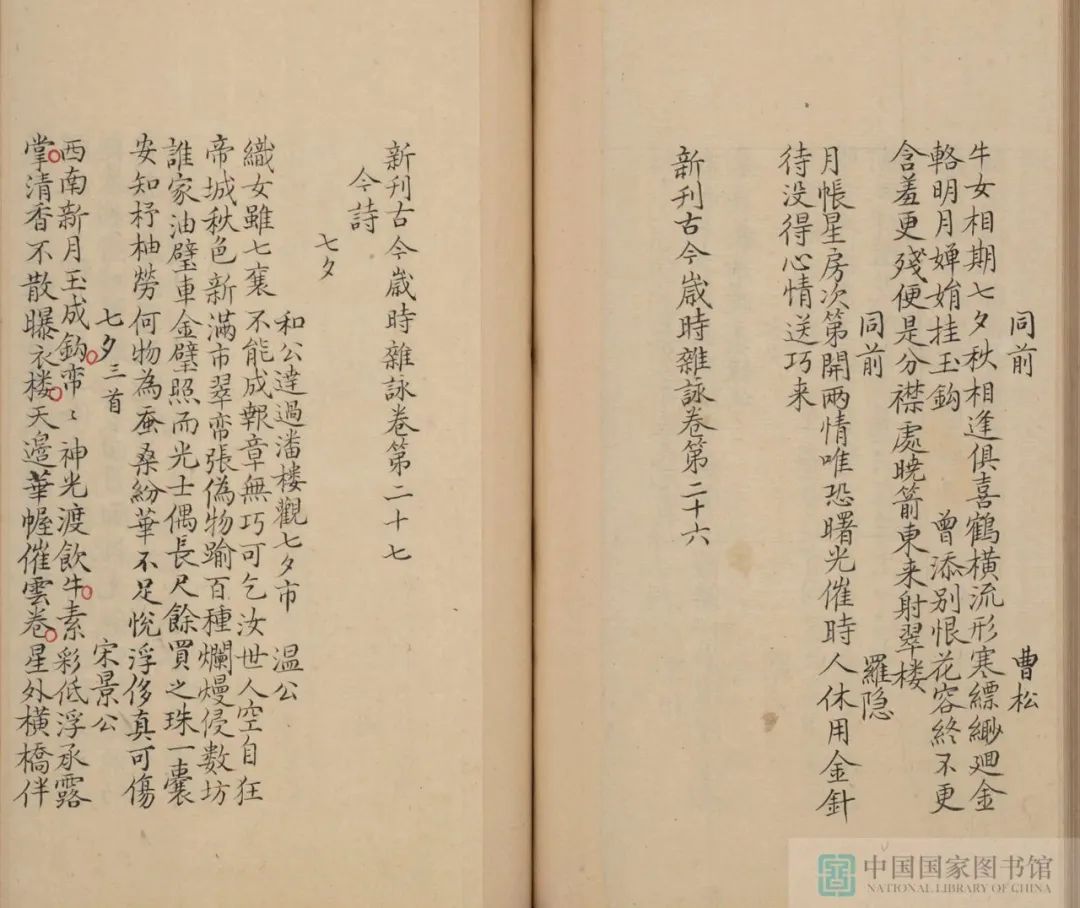 同前 曹松
牛女相期七夕秋相逢俱喜鶴橫流形寒縹緲迴金
輅明月嬋娟挂玉鈎 曾添别恨花容終不更
含羞更殘便是分襟處曉箭東来射翠楼
同前 羅隐
月帳星房次第開兩情唯恐曙光催時人休用金針
待没得心情送巧来
新刋古今嵗時雜詠卷第二十六
新刋古今嵗時雜詠卷第二十七
今詩
七夕
和公達過潘楼觀七夕市 温公
織女雖七襄不能成報章無巧可乞汝世人空自狂
帝城秋色新滿市翠帟張偽物踰百種爛熳侵數坊
誰家油壁車金璧照面光士偶長尺餘買之珠一囊
安知杼柚勞何物為蚕桑紛華不足悅浮侈真可傷
七夕三首 宋景公
西南新月玉成鈎帟〻神光渡飲牛素彩低浮承露
掌清香不散曝衣楼天邉華幄催雲卷星外橫橋伴
中国国家图书馆
NATIONAL LIBRARY OF CHINA